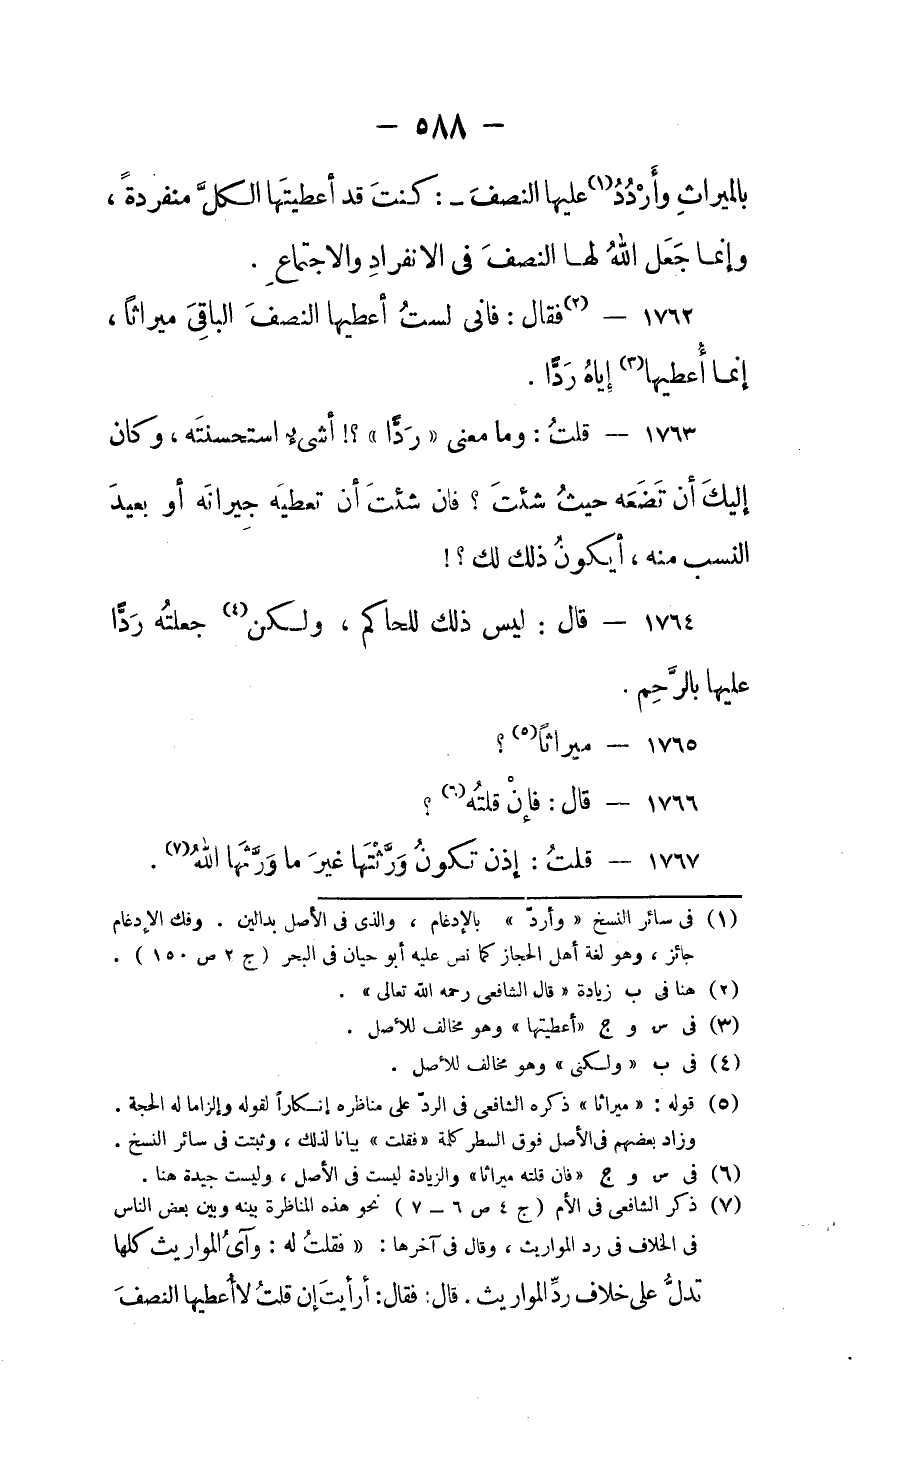 — ٥٨٨ —
بالميراثِ وأَرْدُدُ(١) عليها النصفَ ـ : كنتَ قد أعطيتَها الكلَّ منفردةً ،
وإنما جَعَل اللهُ لها النصفَ فى الانفرادِ والاجتماعِ .
١٧٦٢ — (٢) فقال : فانى لستُ أعطيها النصفَ الباقِىَ ميراثاً ،
إنما أُعطيها(٣) إياهُ رَدًّا .
١٧٦٣ — قلتُ : وما معنى « رَدًّا » ؟! أشىءٌ استحسنتَه ، وكان
إليكَ أن تَضَعَه حيثُ شئتَ ؟ فان شئتَ أن تعطيَه جِيرانَه أو بعيدَ
النسبِ منه ، أيكونُ ذلك لك ؟!
١٧٦٤ — قال : ليس ذلك للحاكم ، ولكن(٤) جعلتُه رَدًّا
عليها بالرَّحِم .
١٧٦٥ — ميراثاً(٥) ؟
١٧٦٦ — قال : فإنْ قلتُه(٦) ؟
١٧٦٧ — قلتُ : إذن تكونُ وَرَّثْتَها غيرَ ما وَرَّثَها اللهُ(٧) .
(١) فى سائر النسخ « وأردّ » بالإدغام ، والذى فى الأصل بدالين . وفك الإدغام
جائز ، وهو لغة أهل الحجاز كما نص عليه أبو حيان فى البحر ( ج ٢ ص ١٥٠ ) .
(٢) هنا فى ب زيادة « قال الشافعى رحمه الله تعالى » .
(٣) فى س و ج «أعطيتها» وهو مخالف للأصل .
(٤) فى ب « ولكنى » وهو مخالف للأصل .
(٥) قوله : « ميراثا » ذكره الشافعى فى الردّ على مناظره إنكاراً لقوله وإلزاما له الحجة .
وزاد بعضهم فى الأصل فوق السطر كلمة «فقلت» بيانا لذلك ، وثبتت فى سائر النسخ .
(٦) فى س و ج «فان قلته ميراثا» والزيادة ليست فى الأصل ، وليست جيدة هنا .
(٧) ذكر الشافعى فى الأم ( ج ٤ ص ٦ ـ ٧ ) نحو هذه المناظرة بينه وبين بعض الناس
فى الخلاف فى رد المواريث ، وقال فى آخرها : « فقلتُ له : وآىُ المواريث كلها
تدلُّ على خلاف ردِّ المواريث . قال: فقال: أرأيتَ إن قلتُ لا أعطيها النصفَ